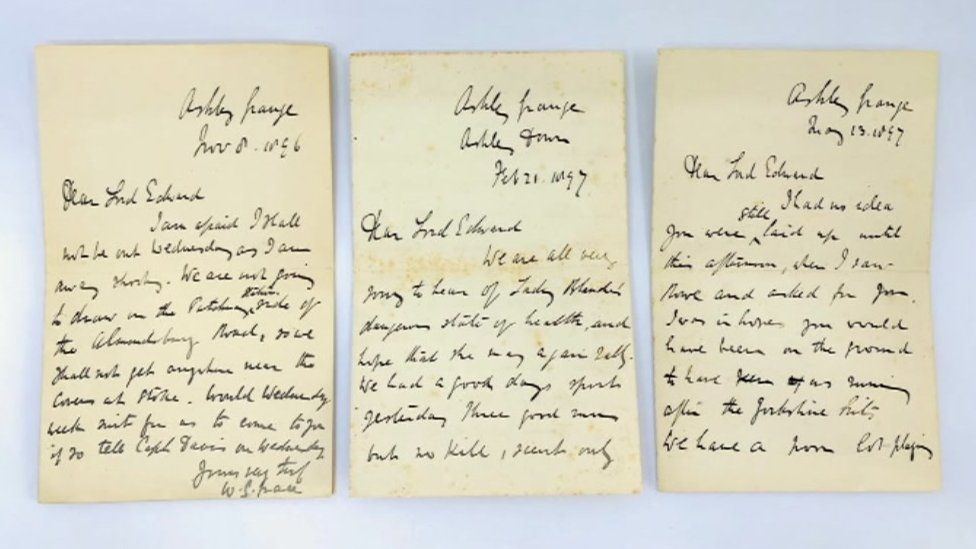 Ashley Grange
Nov 8. 1896
Dear Lord Edward
I am afraid I shall
not be out Wednesday as I am
away shooting. We are not going
to draw on the Patchway Stoke side of
the Almondsbury Road, so we
shall not get anywhere near the
Covers at Stoke. Would Wednesday
week suit for us to come to you
if so tell Capt Davis on Wednesday
Yours very try
W. G. Grace
Ashley Grange
Ashley Down
Feb 21. 1897
Dear Lord Edward
We are all very
sorry to hear of Lady
dangerous state of health, and
hope that she may again rally.
We had a good days sport
yesterday three good runs
but no kill, scent only
Ashley Grange
May 13. 1897
Dear Lord Edward
I had no idea
you were still laid up until
this afternoon, when I saw
Rowe and asked for you.
I was in hopes you would
have been on the ground
to have us running
after the Yorkshire hits
We have a poor lot playing